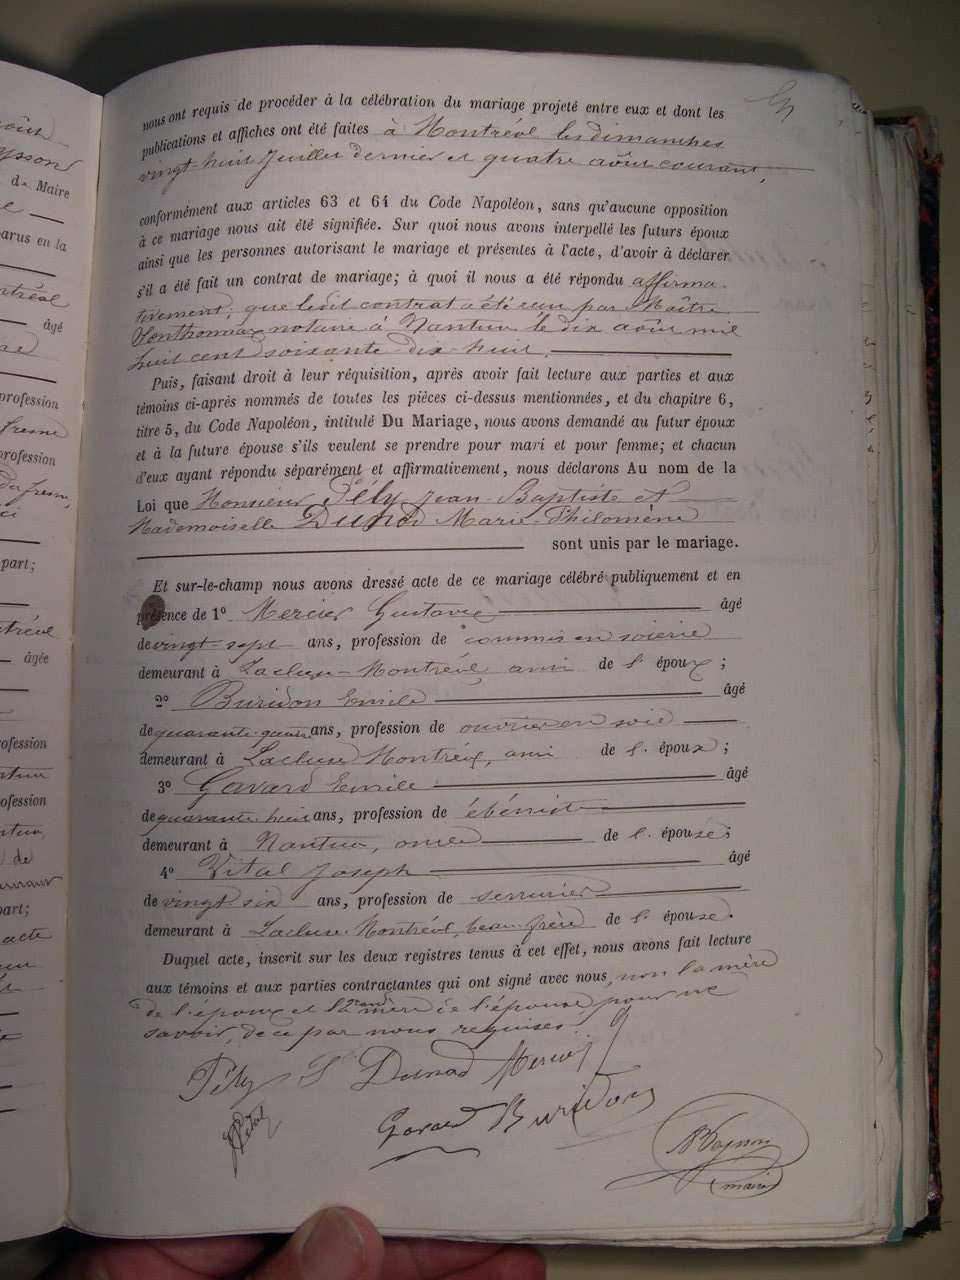 oût
ysson
de Maire
le
parus en la
ntréal
âgé
ne
profession
fresne
profession
du fresne,
ci
part;
ntréal
âgée
rofession
tua
ofession
ntua,
de
part;
acte
nous ont requis de procéder à la célébration du mariage projeté entre eux et dont les
publications et affiches ont été faites à Montréal les dimanches
vingt-huit Juillet dernier et quatre août courant,
conformément aux articles 63 et 64 du Code Napoléon, sans qu'aucune opposition
à ce mariage nous ait été signifiée. Sur quoi nous avons interpellé les futurs époux
ainsi que les personnes autorisant le mariage et présentes à l'acte, d'avoir à déclarer
s'il a été fait un contrat de mariage; à quoi il nous a été répondu affirma-
tivement; que ledit contrat a été reçu par Maître
Sonthonnax notaire à Nantua le dix août mil
huit cent soixante-dix-huit,
Puis, faisant droit à leur réquisition, après avoir fait lecture aux parties et aux
témoins ci-après nommés de toutes les pièces ci-dessus mentionnées, et du chapitre 6,
titre 5, du Code Napoléon, intitulé Du Mariage, nous avons demandé au futur époux
et à la future épouse s'ils veulent se prendre pour mari et pour femme; et chacun
d'eux ayant répondu séparément et affirmativement, nous déclarons Au nom de la
Loi que Monsieur Pély Jean-Baptiste et
Mademoiselle Dunod Marie-Philomène
sont unis par le mariage.
Et sur-le-champ nous avons dressé acte de ce mariage célébré publiquement et en
présence de 1º Mercier Gustave âgé
de vingt-sept ans, profession de commis en soierie
demeurant à Lacluse-Montréal, ami de l'époux;
2º Buridon Emile âgé
de quarante-quatre ans, profession de ouvrier en soie
demeurant à Lacluse Montréal, ami de l'époux;
3º Gavard Emile âgé
de quarante-huit ans, profession de ébéniste
demeurant à Nantua, oncle de l'épouse;
4º Vital Joseph âgé
de vingt-six ans, profession de serrurier
demeurant à Lacluse-Montréal, beau-frère de l'épouse.
Duquel acte, inscrit sur les deux registres tenus à cet effet, nous avons fait lecture
aux témoins et aux parties contractantes qui ont signé avec nous, non la mère
de l'époux et la grand mère de l'épouse pour ne
savoir, de ce par nous requises.
Pély Dunod Mercier
Vital Gavard Buridon
maire